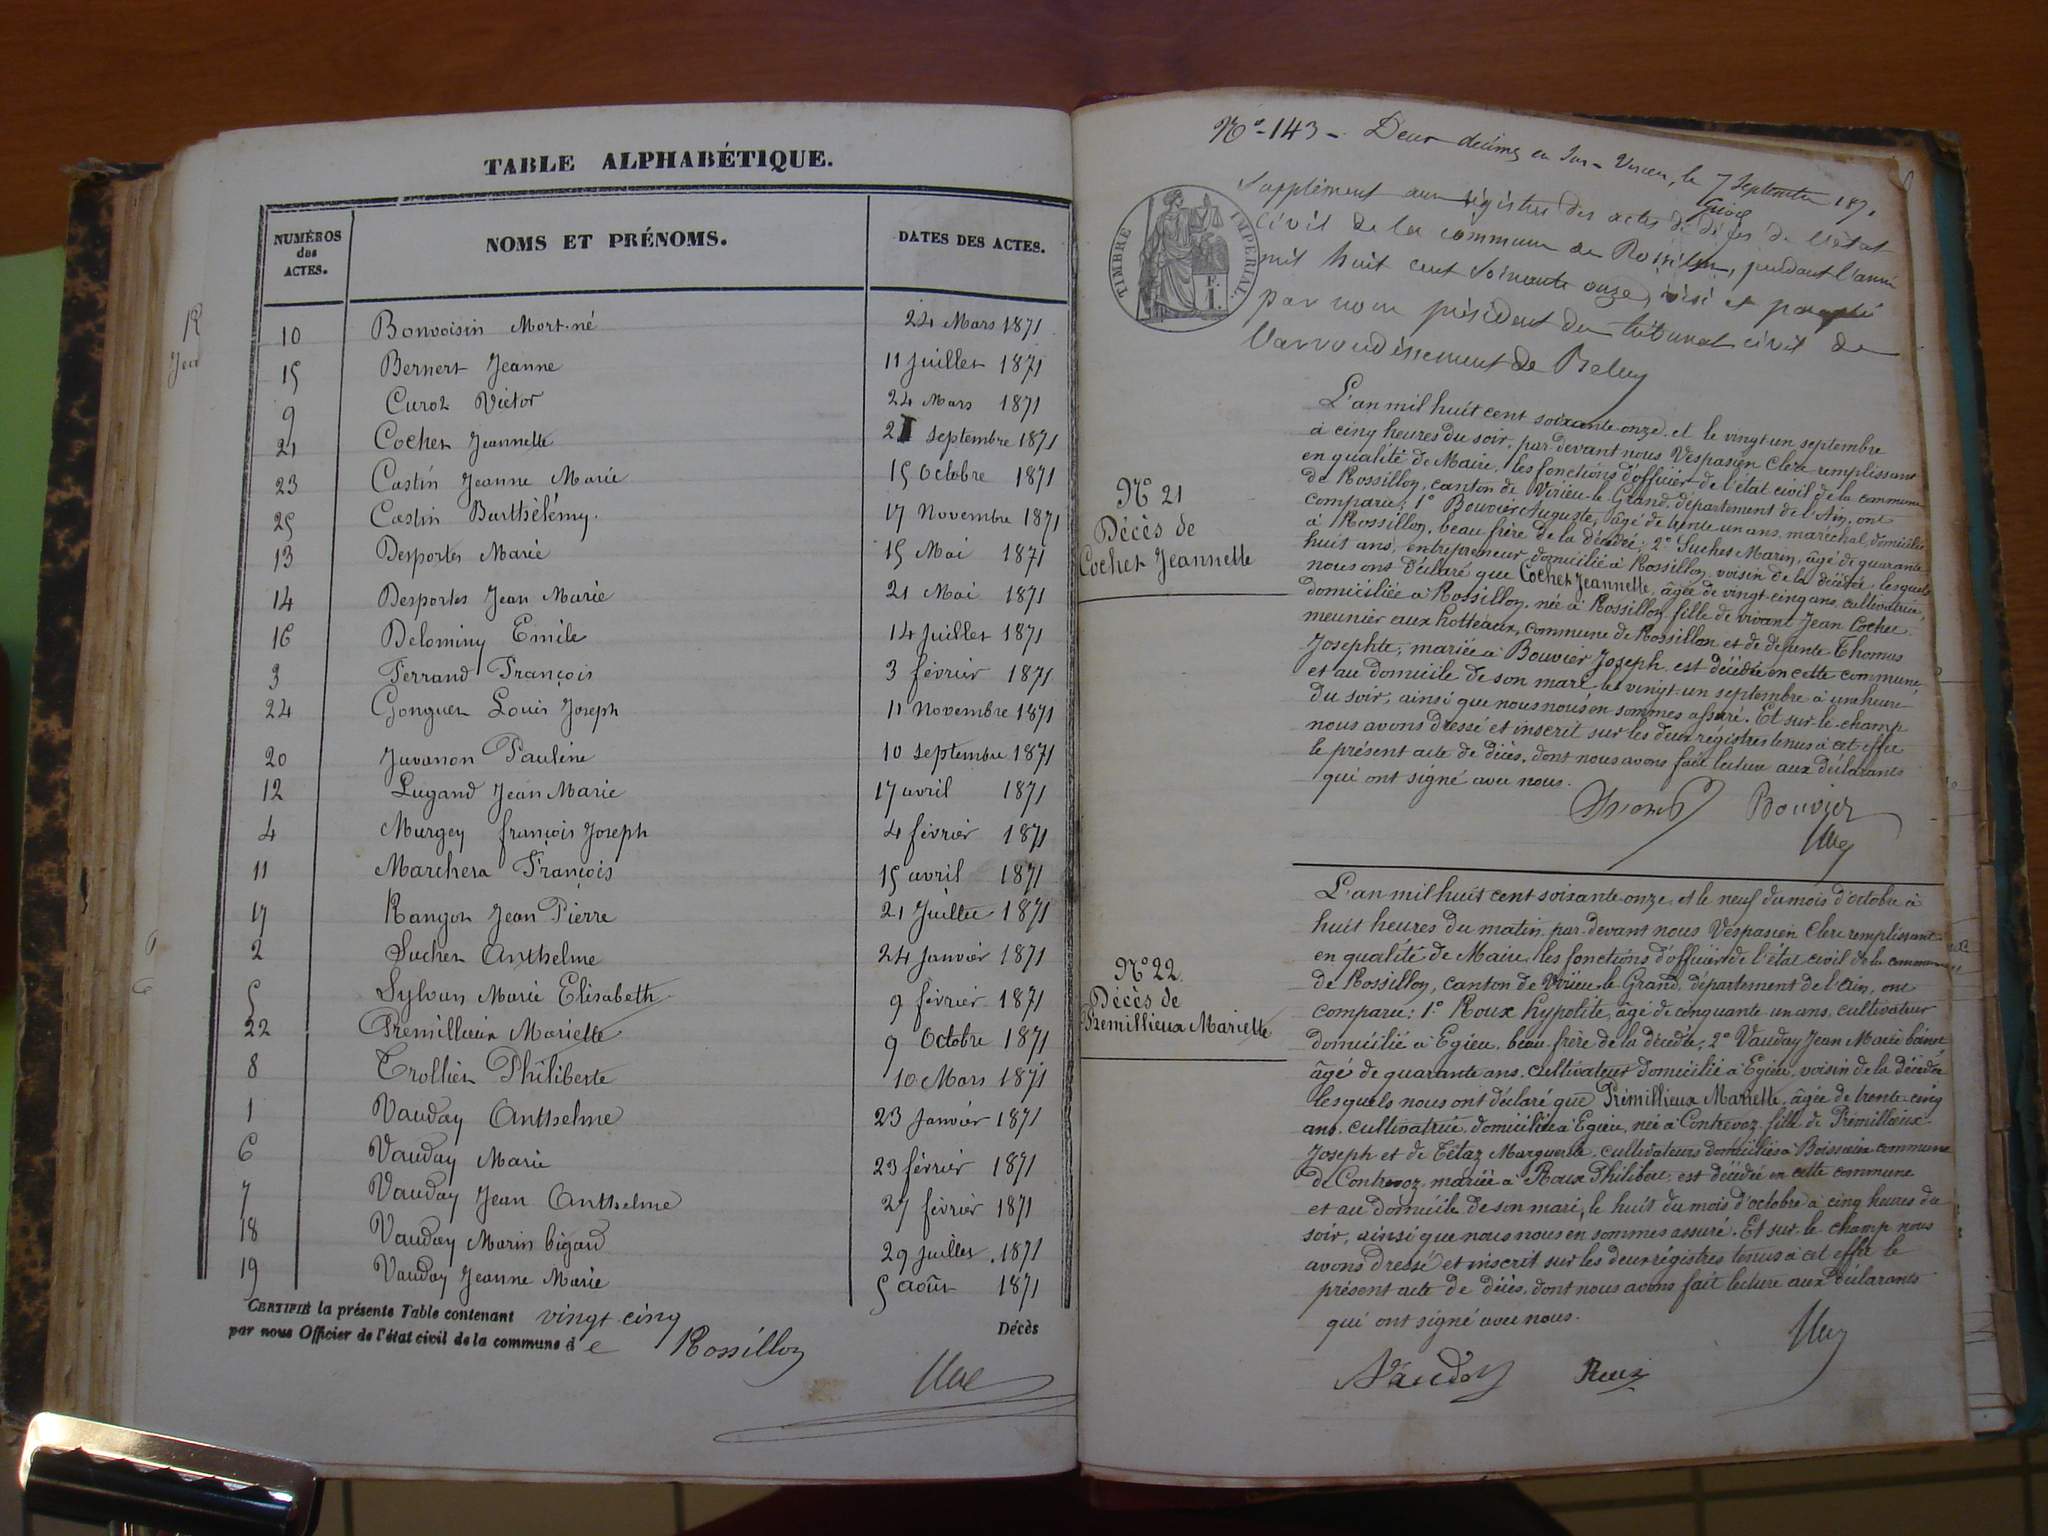 TABLE ALPHABÉTIQUE.
NUMÉROS des ACTES. NOMS ET PRÉNOMS. DATES DES ACTES.
10 Bonvoisin Mort-né 24 Mars 1871
15 Bernert Jeanne 11 Juillet 1871
9 Curoz Victor 24 Mars 1871
21 Cochet Jeannette 21 septembre 1871
23 Castin Jeanne Marie 15 Octobre 1871
25 Castin Barthélémy. 17 Novembre 1871
13 Desportes Marie 15 Mai 1871
14 Desportes Jean Marie 21 Mai 1871
16 Delominy Emile 14 Juillet 1871
3 Ferrand François 3 février 1871
24 Gonguet Louis Joseph 11 Novembre 1871
20 Juvanon Pauline 10 septembre 1871
12 Lugand Jean Marie 17 avril 1871
4 Murgey françois Joseph 4 février 1871
11 Marchera François 15 avril 1871
17 Rangot Jean Pierre 21 Juillet 1871
2 Suchet Anthelme 24 Janvier 1871
5 Sylvan Marie Elisabeth 9 février 1871
22 Premillieux Mariette 9 Octobre 1871
8 Trollier Philiberte 10 Mars 1871
1 Vauday Anthelme 23 Janvier 1871
6 Vauday Marie 23 février 1871
7 Vauday Jean Anthelme 27 février 1871
18 Vauday Marin bigard 29 Juillet 1871
19 Vauday Jeanne Marie 5 août 1871
CERTIFIÉ la présente Table contenant vingt-cinq Décès
par nous Officier de l'état civil de la commune de Rossillon
Nº-143- Deux décimes en sus- Virieu, le 7 Septembre 1871
Supplément aux régistres des actes de décès de l'état
civil de la commune de Rossillon, pendant l'année
mil huit cent soixante onze, visé et paraphé
par nous président du tribunal civil de
l'arrondissement de Belley
TIMBRE IMPERIAL.
F.
1.
Nº 21
Décès de
Cochet Jeannette
L'an mil huit cent soixante-onze, et le vingt-un septembre
à cinq heures du soir, par devant nous Vespasien Clerc remplissant
en qualité de Maire, les fonctions d'officier de l'état civil de la commune
de Rossillon, canton de Virieu-le-Grand, département de l'Ain, ont
comparu: 1º Bouvier Auguste, âgé de trente un ans, maréchal, domicilié
à Rossillon, beau frère de la décédé; 2º Suchet Marin, âgé de quarante
huit ans, entrepreneur, domicilié à Rossillon, voisin de la décédé, lesquels
nous ont déclaré que Cochet Jeannette, âgée de vingt-cinq ans, cultivatrice,
domiciliée à Rossillon, née à Rossillon, fille de vivant Jean Cochet
meunier aux hotteaux, commune de Rossillon et de défunte Thomas
Josephte, mariée à Bouvier Joseph, est décédée en cette commune,
et au domicile de son mari, le vingt-un septembre à une heure
du soir, ainsi que nous nous en sommes assuré. Et sur-le-champ
nous avons dressé et inscrit sur les deux registres tenus à cet effet
le présent acte de décès, dont nous avons fait lecture aux déclarants
qui ont signé avec nous.
Bouvier
Nº 22.
Décès de
Premillieux Mariette
L'an mil huit cent soixante-onze, et le neuf du mois d'octobre à
huit heures du matin, par-devant nous Vespasien Clerc remplissant
en qualité de Maire, les fonctions d'officier de l'état civil de la commune
de Rossillon, canton de Virieu-le-Grand, département de l'Ain, ont
comparu: 1º Roux hypolite, âgé de cinquante un ans, cultivateur
domicilié à Egieu, beau-frère de la décédée, 2º Vauday Jean Marie
âgé de quarante ans, cultivateur domicilié à Egieu, voisin de la décédée
lesquels nous ont déclaré que Prémillieux Mariette, âgée de trente-cinq
ans, cultivatrice, domiciliée à Egieu, née à Contrevoz, fille de Prémillieux
Joseph et de Tétaz Marguerite, cultivateurs domiciliés à Boissieu commune
de Contrevoz, mariée à Roux Philibert, est décédée en cette commune
et au domicile de son mari, le huit du mois d'octobre à cinq heures du
soir, ainsi que nous nous en sommes assuré. Et sur-le-champ nous
avons dressé et inscrit sur les deux régistres tenus à cet effet le
présent acte de décès, dont nous avons fait lecture aux déclarants
qui ont signé avec nous.
Vauday Roux